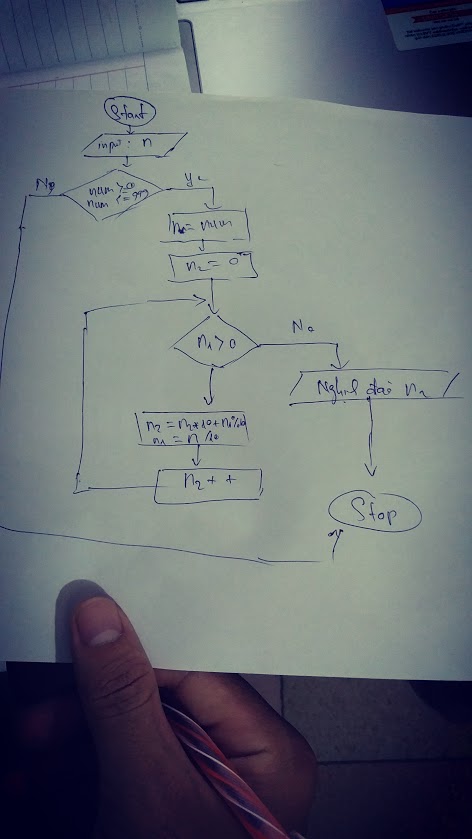 Start
input: n
No
num >0
num <=999
n1= num
n2 = 0
n1 > 0
No
Nghịch đảo n2
n2 = n2*10+n1%10
n1 = n1/10
n2 + +
Stop